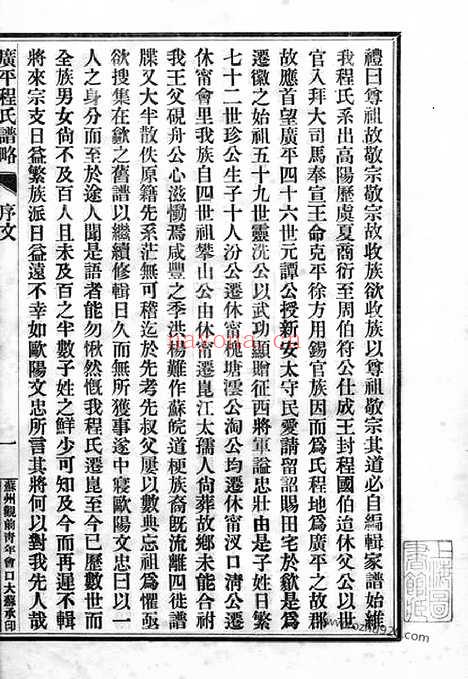 禮曰尊祖故敬宗敬宗故收族欲收族以尊祖敬宗其道必自編輯家譜始維
我程氏系出高陽歷虞夏商衍至周伯符公仕成王封程國伯迨休父公以世
官入拜大司馬奉宣王命克平徐方用錫官族因而爲氏程地爲廣平之故郡
故應首望廣平四十六世元譚公授新安太守民愛請留詔賜田宅於歙是爲
遷徽之始祖五十九世靈洗公以武功顯贈征西將軍諡忠壯由是子姓日繁
七十二世珍公生子十人汾公遷休甯槐塘澐公淘公均遷休甯汊口淸公遷
休甯會里我族自四世祖攀山公由休甯遷崑江太孺人尙葬故鄉未能合祔
我王父硯舟公心滋慟焉咸豐之季洪楊難作蘇皖道梗族裔旣流離四徙譜
牒又大半散佚原籍先系茫無可稽迄於先考先叔父屢以數典忘祖爲懼亟
欲搜集在歙之舊譜以繼續修輯日久而無所獲事遂中寢歐陽文忠曰以一
人之身分而至於途人聞是語者能勿愀然慨我程氏遷崑至今已歷數世而
全族男女尙不及百人且未及百之半數子姓之鮮少可知及今而再遲不輯
將來宗支日益繁族派日益遠不幸如歐陽文忠所言其將何以對我先人哉
廣平程氏譜略
序文
一
蘇州觀前靑年會口大蘇承印
上海圖書館藏
nayona.cn
www.ozhu8920.com